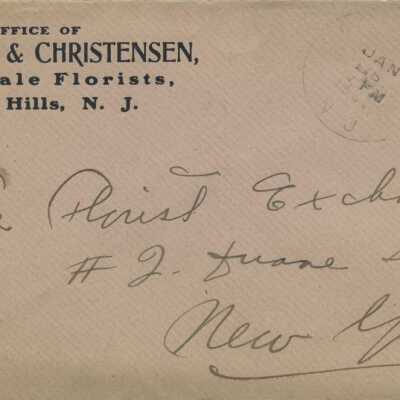 FFICE OF
& CHRISTENSEN,
ale Florists,
Hills, N. J.
JAN
PM
N. J.
Florist Exch
# 2. Duane
New Y